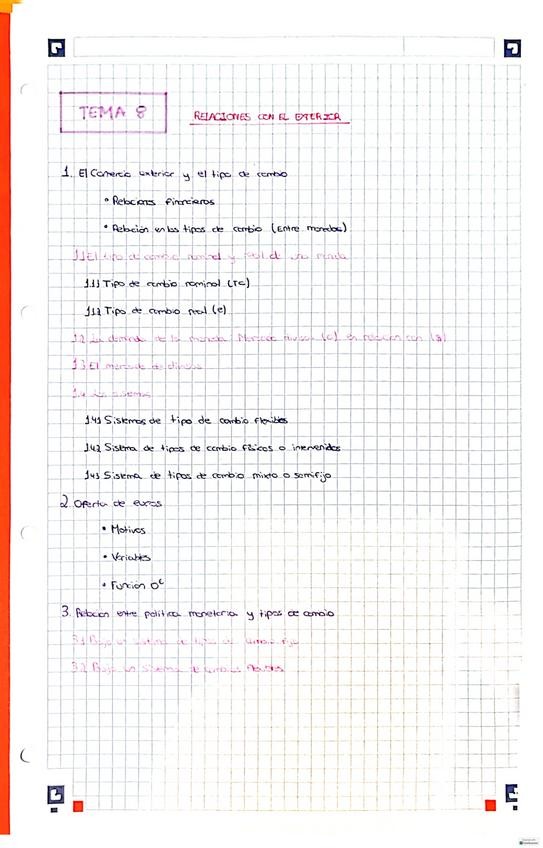 TEMA 8
RELACIONES CON EL EXTERIOR
1. El Comercio exterior y el tipo de cambio
• Relaciones financieros
• Relación en los tipos de cambio (Entre monedas)
1.1 El tipo de cambio nominal y real de una moneda
1.1.1 Tipo de cambio nominal (TC)
1.1.2 Tipo de cambio real (e)
1.2 La demanda de la moneda: Mercado divisas (€) en relación con ($)
1.3 El mercado de divisas
1.4 Los sistemas
1.4.1 Sistemas de tipo de cambio flexibles
1.4.2 Sistema de tipos de cambio físicos o intervenidos
1.4.3 Sistema de tipos de cambio mixto o semifijo
2. Oferta de euros
• Motivos
• Variables
• Función O€
3. Relación entre política monetaria y tipos de cambio
3.1 Bajo un sistema de tipos de cambio fijo
3.2 Bajo un sistema de cambios flexibles